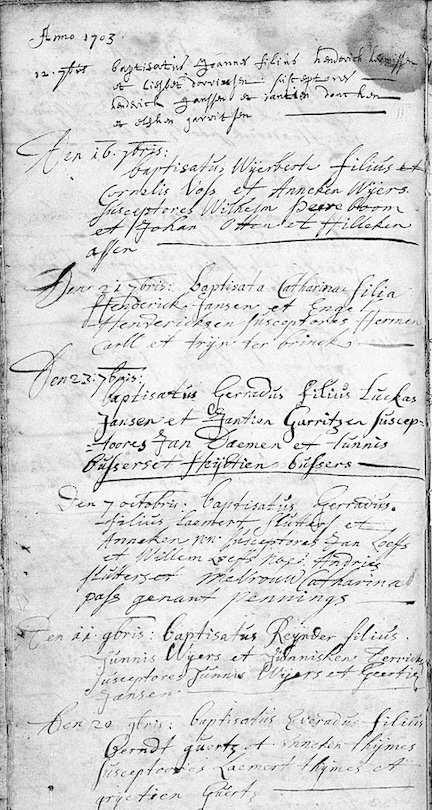 Anno 1703.
12. 7bris baptisatus Joannes filius hendrick
et Lisbet susceptores
hendrick Janssen et Jantien
et elsken garritsen
Den 16. 7bris:
baptisatus Wyerbert filius
Cornelis Voss et Anneken Wyers
susceptores Wilhelm Pereboom
et Johan Otten et Hilleken
assen
Den 21 7bris: baptisata Catharina filia
Henderick Jansen et Enge
Hendericksen susceptores Hermen
Carll et trijn ter brinck
Den 23: 7bris:
baptisatus Gerradus filius Luckas
Jansen et Jantien Garritzen suscep-
-toores Jan Daemen et tunnis
bussers et Heijltien bussers
Den 7 octobris: baptisatus Gerradus.
filius Laemert Sluther et
Anneken NN: susceptores Jan Loefs
et Willem Loefs Andries
slutters et Catharina
pass genant pennings
Den 11 9bris: baptisatus Reynder filius.
Tunnis Wyers et Tunnisken Derricks
susceptores Tunnis Wyers et Geertie
Jansen
Den 20 9bris: baptisatus Everadus filius
Berndt guerts et Anneken thijmes
susceptoores Laemert thijmes et
grietien Guerts